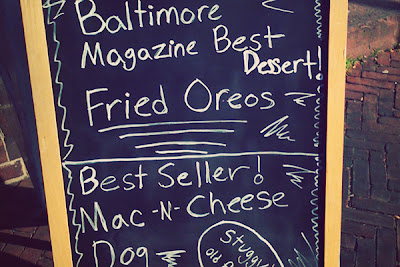 Baltimore
Magazine Best
Dessert!
Fried Oreos
Best Seller!
Mac -N- Cheese
Dog
Old